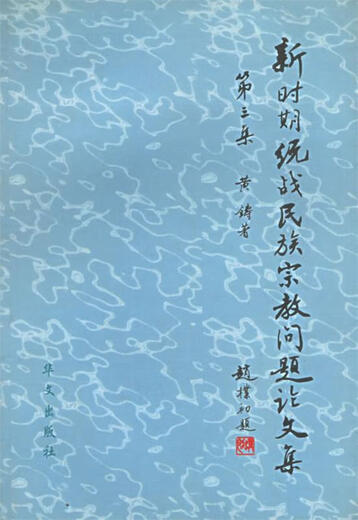 新时期统战民族宗教问题论文集
第三集 黄铸著
赵朴初题
华文出版社